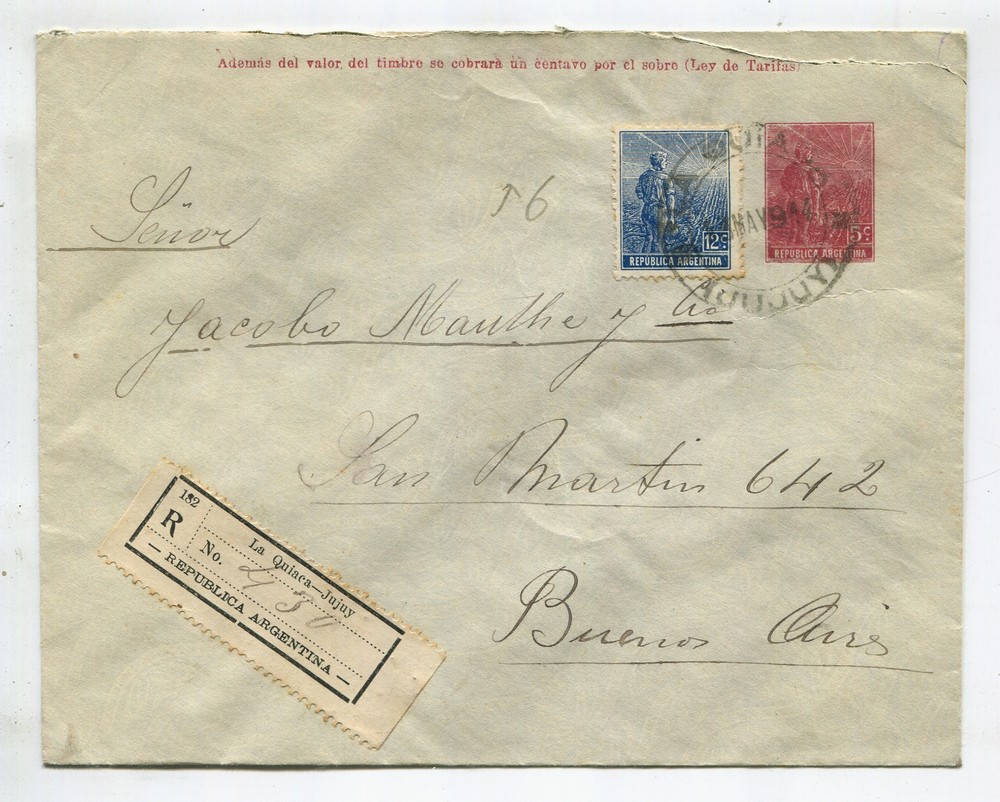 Además del valor del timbre se cobrará un centavo por el sobre (Ley de Tarifas)
Señor
56
12c
REPÚBLICA ARGENTINA
5c
REPÚBLICA ARGENTINA
MAY 914
(JUJUY)
Jacobo Mauthe y Cia
San Martin 642
Buenos Aires
182
R
La Quiaca—Jujuy
No. 430
— REPUBLICA ARGENTINA —